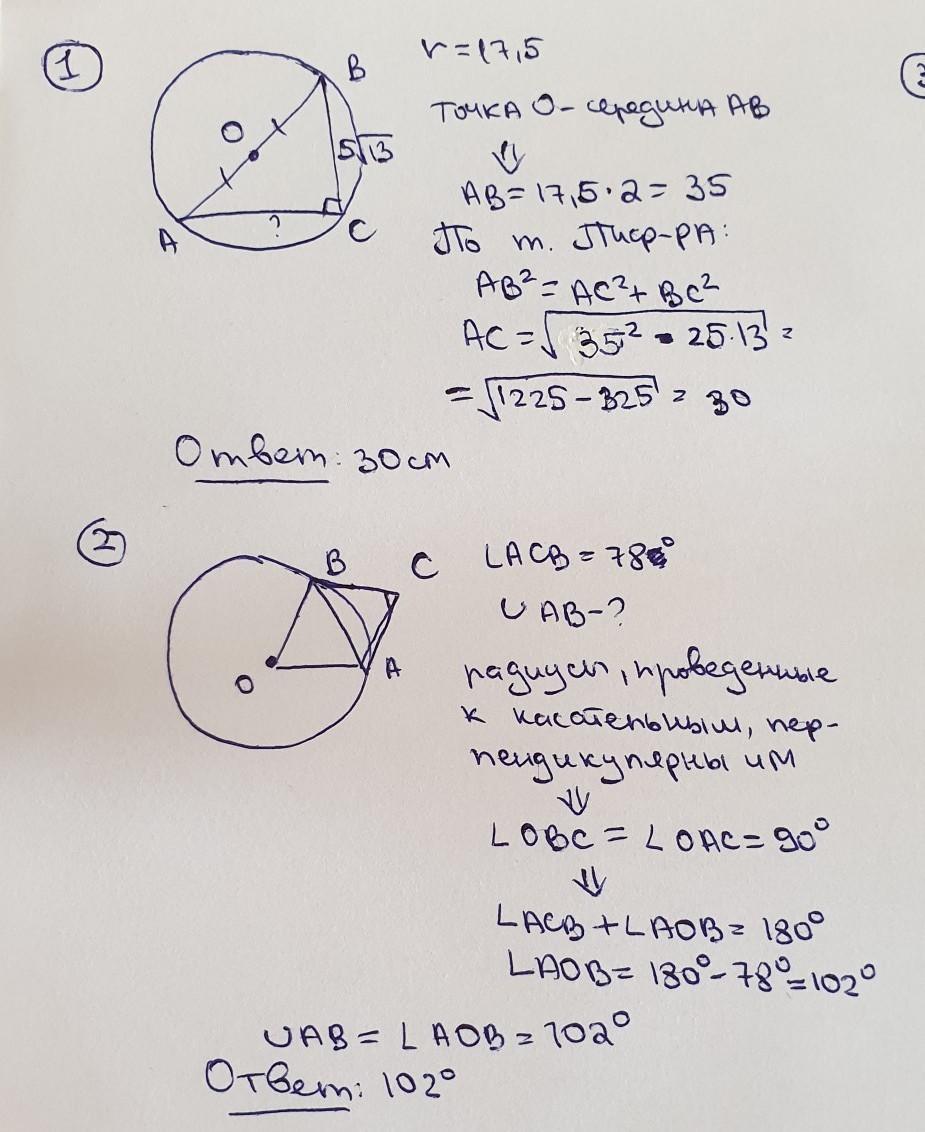 1
r=17,5
B
точка O - середина AB
O
⇓
5√13
AB=17,5·2=35
?
A
C
По т. Пиф-РА:
AB²=AC²+BC²
AC=√35²-25·13=
=√1225-325=30
Ответ: 30см
2
B
C
∠ACB=78°
∪AB-?
A
O
радиусы, проведенные
к касательным, пер-
пендикулярны им
⇓
∠OBC=∠OAC=90°
⇓
∠ACB+∠AOB=180°
∠AOB=180°-78°=102°
∪AB=∠AOB=102°
Ответ: 102°